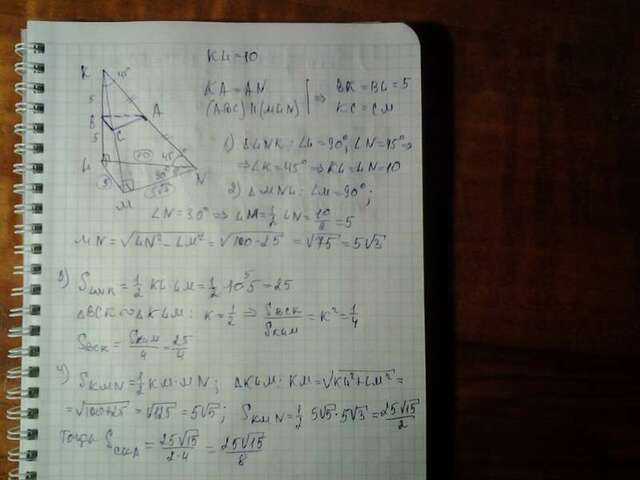 KL=10
K 45°
5
B
5
C
A
L
10
45°
N
30°
5
5√3
M
KA = AN
(ABC) || (MLN)
⇒ BK = BL = 5
KC = CM
1) ΔLNK: ∠L=90°, ∠N=45° ⇒
⇒ ∠K=45° ⇒ KL=LN=10
2) ΔMNL: ∠M=90°;
∠N=30° ⇒ LM=1/2 LN=10/2=5
MN=√LN²-LM²=√100-25=√75=5√3
3) S LMK=1/2 KL·LM=1/2·10·5=25
ΔBCK∾ΔKLM: K=1/2 ⇒ S BCK/S KLM=K²=1/4
S BCK=S KLM/4=25/4
4) S KMN=1/2 KM·MN; ΔKLM: KM=√KL²+LM²=
=√100+25=√125=5√5; S KMN=1/2 5√5·5√3=25√15/2
Тогда S CKA=25√15/2·4=25√15/8